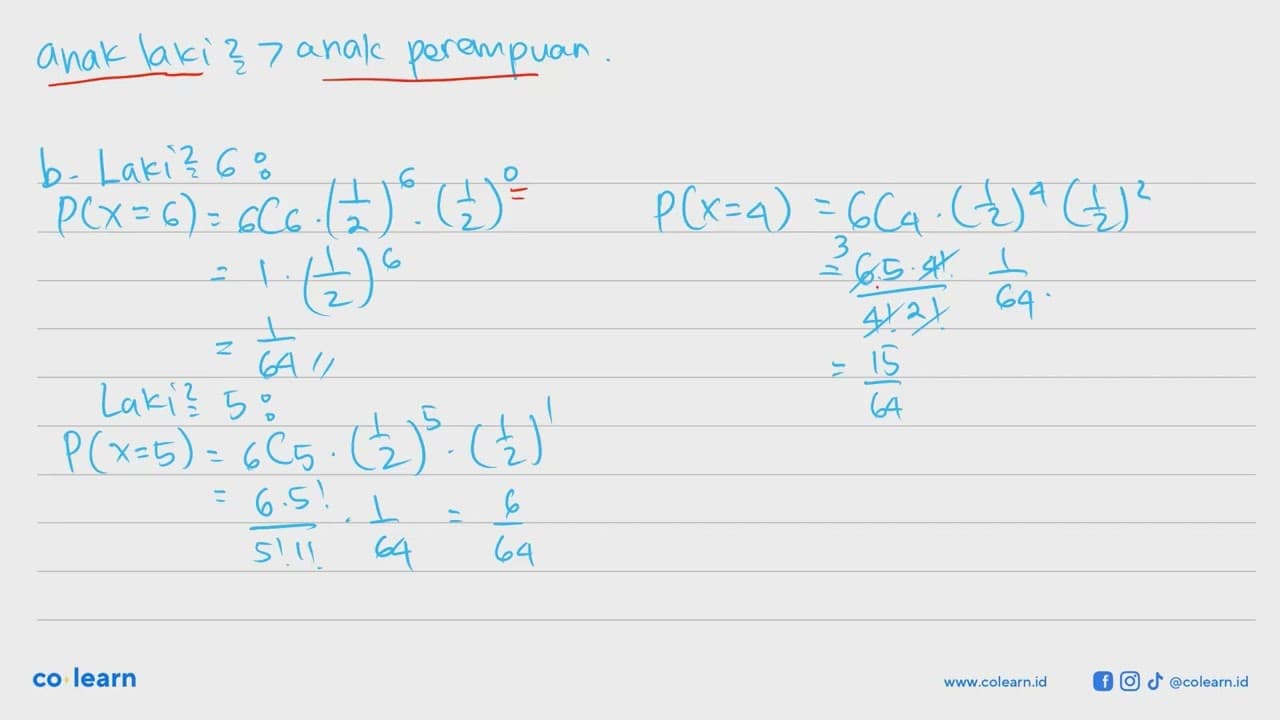 anak laki2 > anak perempuan.
b. Laki2 = 6 :
P(X=6) = 6C6 · (1/2)^6 · (1/2)^0 =
= 1 · (1/2)^6
= 1/64 //
Laki2 = 5 :
P(X=5) = 6C5 · (1/2)^5 · (1/2)^1
= 6.5!/5!1! · 1/64 = 6/64
P(X=4) = 6C4 · (1/2)^4 (1/2)^2
= 3 6.5.4!/4!2! 1/64.
= 15/64
co learn
www.colearn.id @colearn.id